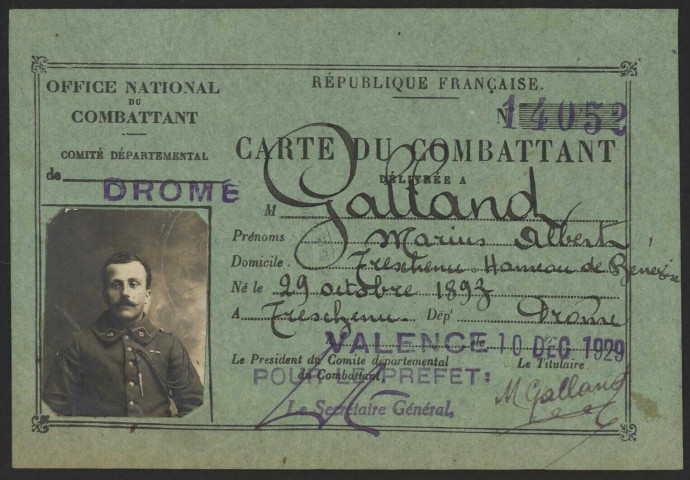 OFFICE NATIONAL
DU
COMBATTANT
COMITÉ DÉPARTEMENTAL
de
DROME
RÉPUBLIQUE FRANÇAISE.
N° 14052
CARTE DU COMBATTANT
DÉLIVRÉE A
M Galland
Prénoms : Marius Albert
Domicile : Treschenu Hameau de
Né le 29 octobre 1893
A Treschenu Dépt Drome
VALENCE le 10 DÉC 1929
Le President du Comité départemental
du Combattant,
Le Titulaire
POUR LE PREFET :
Le Secrétaire Général,
M Galland